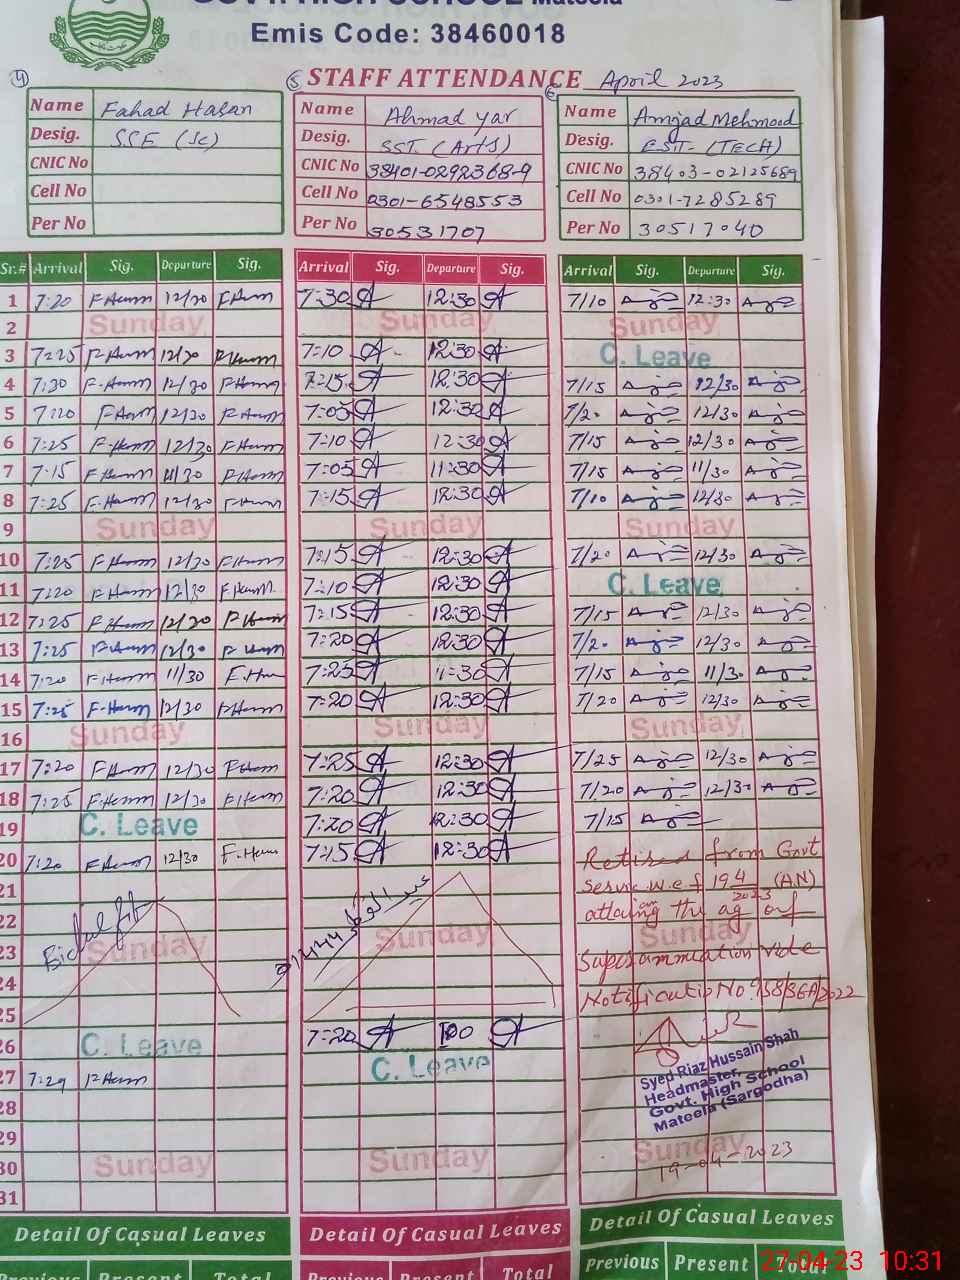 GOVT. HIGH SCHOOL Mateela
Emis Code: 38460018
STAFF ATTENDANCE April 2023
4
Name Fahad Hasan
Desig. SSE (Sc)
CNIC No
Cell No
Per No
5
Name Ahmad yar
Desig. SST (Arts)
CNIC No 38401-0292368-9
Cell No 0301-6548553
Per No 30531707
6
Name Amjad Mehmood
Desig. EST-(TECH)
CNIC No 38403-02125689
Cell No 0301-7285289
Per No 30517040
Sr.# Arrival Sig. Departure Sig. Arrival Sig. Departure Sig. Arrival Sig. Departure Sig.
1 7:20 12/30 7:30 12:30 7/10 12:30
2 Sunday Sunday Sunday
3 7:25 12/30 7:10 12:30 C. Leave
4 7:30 12/30 7:15 12:30 7/15 12/30
5 7:20 12/30 7:05 12:30 7/20 12/30
6 7:25 12/30 7:10 12:30 7/15 12/30
7 7:15 11/30 7:05 11:30 7/15 11/30
8 7:25 12/30 7:15 12:30 7/10 12/30
9 Sunday Sunday Sunday
10 7:25 12/30 7:15 12:30 7/20 12/30
11 7:20 12/30 7:10 12:30 C. Leave
12 7:25 12/30 7:15 12:30 7/15 12/30
13 7:25 12/30 7:20 12:30 7/20 12/30
14 7:20 11/30 7:25 11:30 7/15 11/30
15 7:25 12/30 7:20 12:30 7/20 12/30
16 Sunday Sunday Sunday
17 7:20 12/30 7:25 12:30 7/25 12/30
18 7:25 12/30 7:20 12:30 7/20 12/30
19 C. Leave 7:20 12:30 7/15
20 7:20 12/30 7:15 12:30 Retired from Govt
21 service w.e.f 19 4/2023 (A.N)
22 عید الفطر attaining the ag of
23 Sunday Sunday Sunday
Superannuation vide
24
25 Notificatio No.
26 C. Leave 7:20
27 7:29 C. Leave
Syed Riaz Hussain Shah
Headmaster,
Govt. High School
Mateela (Sargodha)
28
29
30 Sunday Sunday Sunday
19-04-2023
31
Detail Of Casual Leaves Detail Of Casual Leaves Detail Of Casual Leaves
Previous Present Total Previous Present Total Previous Present Total
27-04-23 10:31